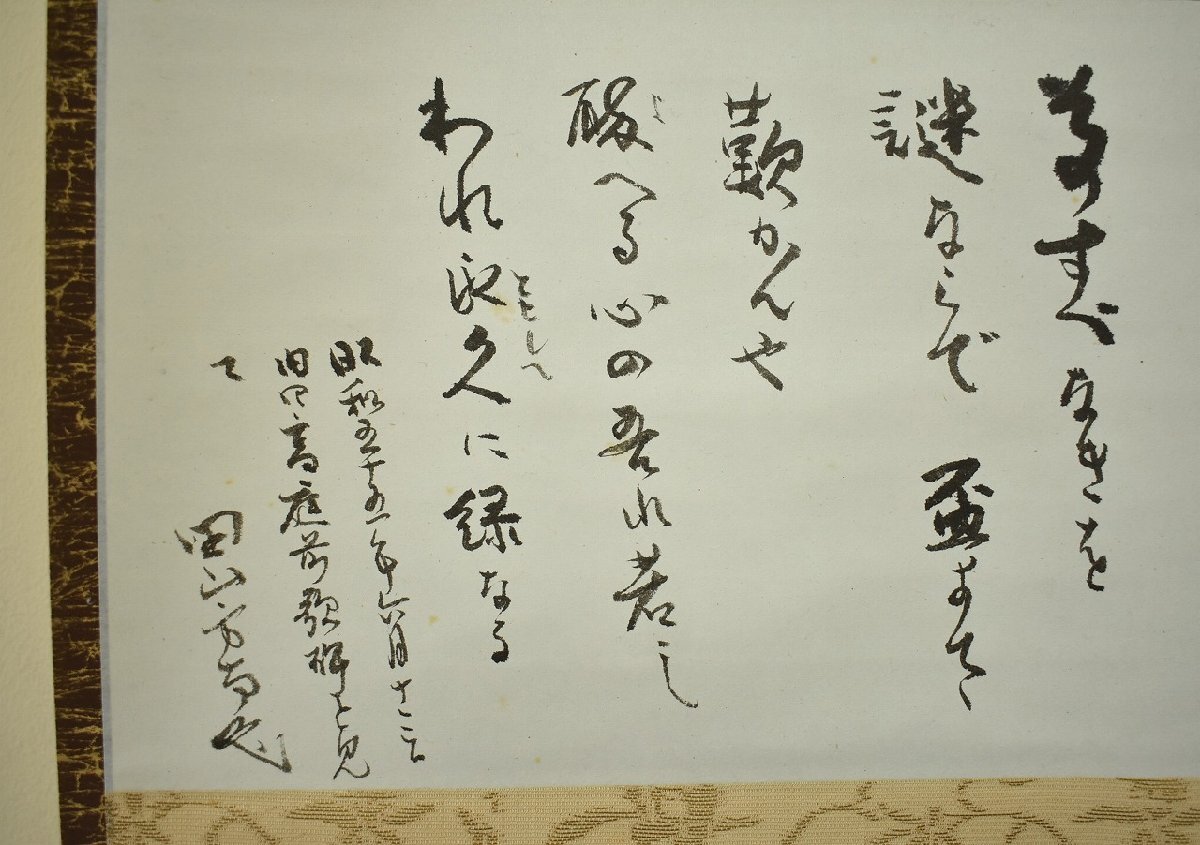 すべなきを
謎ならで 盃
歎かんや
酔へる心の吾れ若し
われ永久に緑なる
とこしへ
昭和五十五年六月
旧四高庭前歌碑を見
て
田山方南